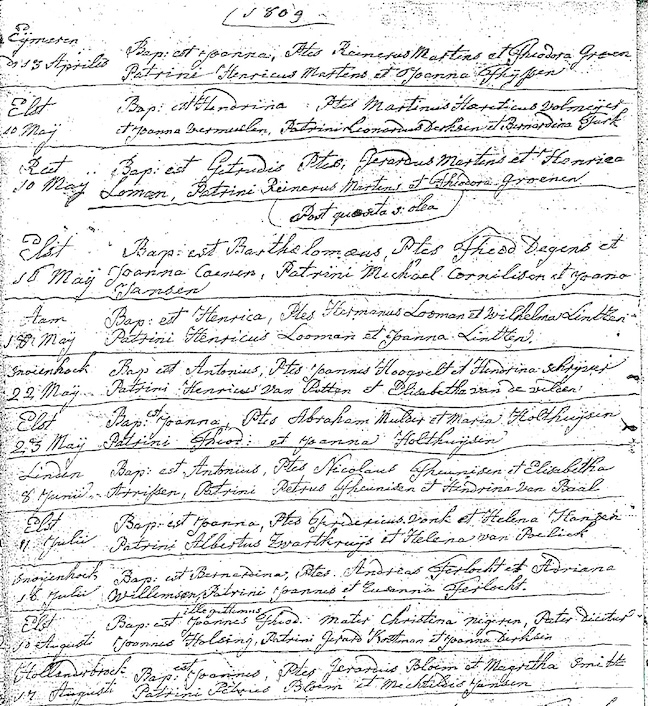 1809
Eymeren Bap: est Joanna, Ptes Reinerus Martens et Theodora Groenen
13 Aprilis Patrini Henricus Martens et Joanna Thijssen
Elst Bap: est Hendrina Ptes Martinus Hoereticus Volmeijer
10 Maÿ et Joanna Vermeulen, Patrini Leonardus Derksen et Bernardina Turk
Reet Bap: est Getrudis Ptes, Gerardus Martens et Henrica
10 Maÿ Loman, Patrini Reinerus Martens et Theodora Groenen
Post quæsita s: olea
Elst Bap: est Bartholomæus, Ptes Theod Degens et
18 Maÿ Joanna Coenen, Patrini Michael Cornilisen et Joana
Jansen
Aam Bap: est Henrica, Ptes Hermanus Looman et Wilhelma Lintten
18 Maÿ Patrini Henricus Looman et Joanna Lintten.
Bap est Antonius, Ptes Joannes Hoogvelt et Hendrina Schrijver
22 Maÿ Patrini Henricus Van Botten et Elisabetha van de velden
Elst Bap: est Joanna, Ptes Abraham Mulder et Maria Holthuijsen
23 Maÿ Patrini Theod: et Joanna Holthuijsen
Linden Bap: est Antonius, Ptes Nicolaus Theunisen et Elisabetha
8 Junii Arrissen, Patrini Petrus Theunisen et Hendrina Van Baal
Elst Bap: est Joanna, Ptes Fridericus Vonk et Helena Hansen
11 Julii Patrini Albertus Zwartkruijs et Helena van
Bap: est Bernardina, Ptes Andrias Terlocht et Adriana
18 Julii Willemsen, Patrini Joannes et Susanna Terlocht.
illegittimus
Elst Bap: est Joannes Theod: Mater Christina Nijgren, Pater dicitur
10 Augusti Joannes Holsing, Patrini Gerard et Joanna Derksin
Hollanderbroek Bap: est Joannes, Ptes Gerardus Bloem et Megritha Smitt
17 Augusti Patrini Petrus Bloem et Mechtildis Jansen